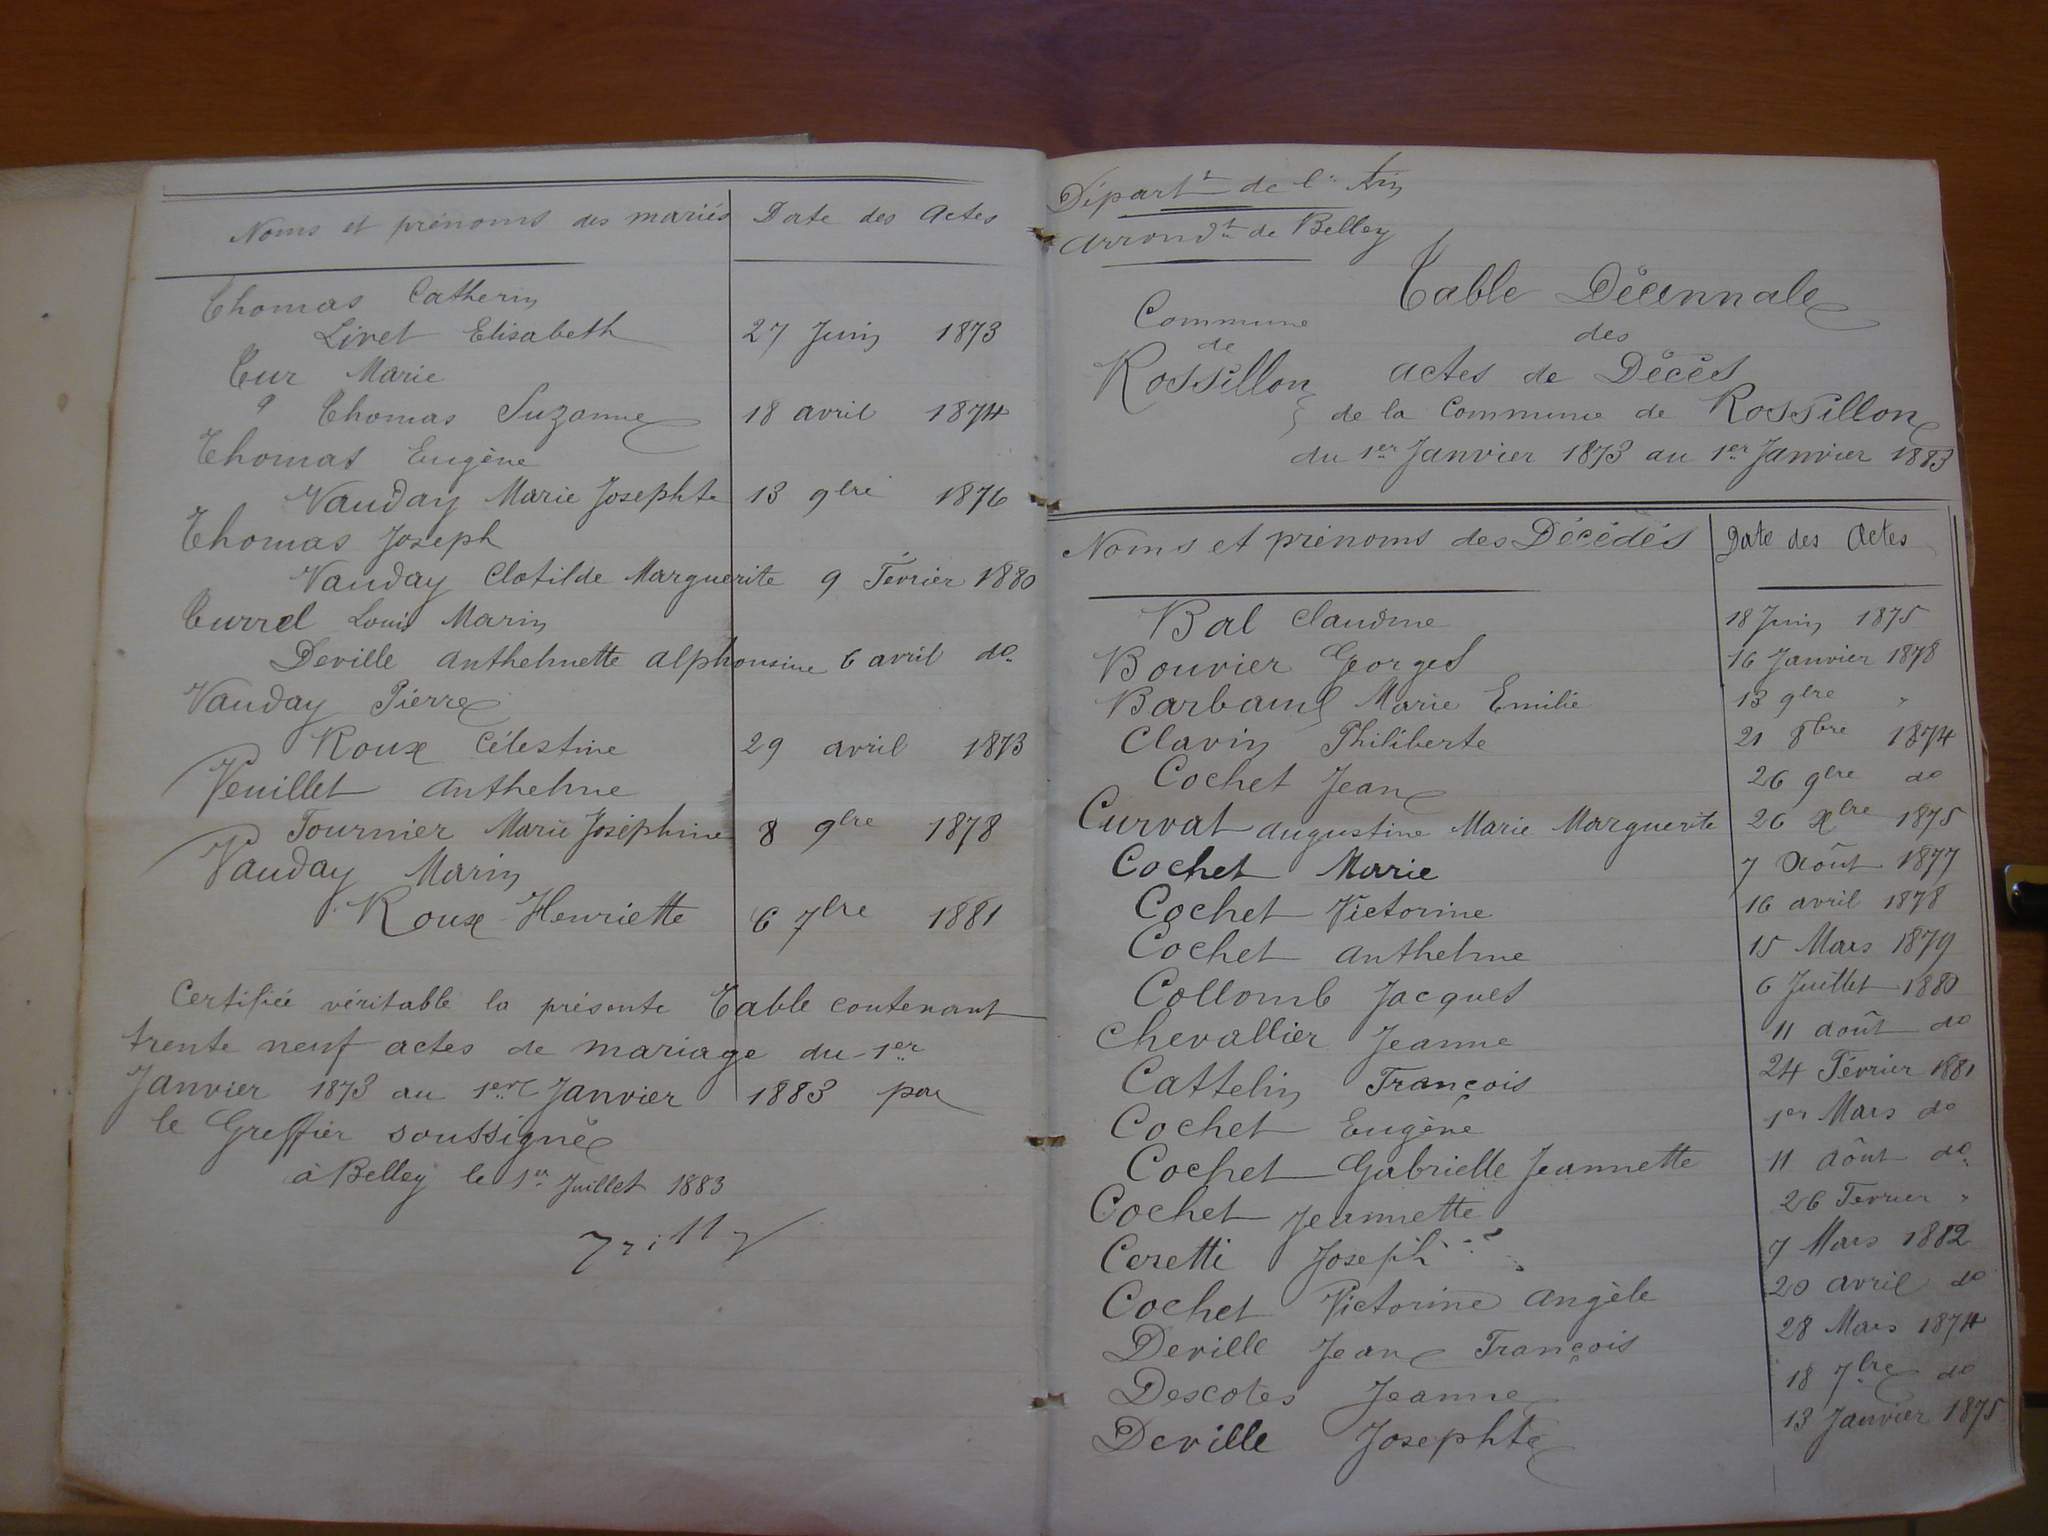 Noms et prénoms des mariés Date des Actes
Thomas Catherin
Livet Elisabeth 27 Juin 1873
Tur Marie
Thomas Suzanne 18 avril 1874
Thomas Eugène
Vauday Marie Josephte 13 9bre 1876
Thomas Joseph
Vauday Clotilde Marguerite 9 Février 1880
Turrel Louis Marin
Deville Anthelmette alphonsine 6 avril do
Vauday Pierre
Roux Célestine 29 avril 1873
Veuillet Anthelme
Tournier Marie Joséphine 8 9bre 1878
Vauday Marin
Roux Henriette 6 7bre 1881
Certifiée véritable la présente Table contenant
trente neuf actes de mariage du 1er
Janvier 1873 au 1er Janvier 1883 par
le Greffier soussigné
à Belley le 1er Juillet 1883
Départt de l'Ain
Arrondt de Belley
Commune
de
Rossillon
Table Décennale
des
actes de Décès
de la Commune de Rossillon
du 1er Janvier 1873 au 1er Janvier 1883
Noms et prénoms des Décédés Date des Actes
Bal Claudine 18 Juin 1875
Bouvier Georges 16 Janvier 1878
Marie Emilie 13 9bre "
Clavin Philiberte 21 8bre 1874
Cochet Jean 26 9bre do
Curvat augustine Marie Marguerite 26 Xbre 1875
Cochet Marie 7 Août 1877
Cochet Victorine 16 avril 1878
Cochet Anthelme 15 Mars 1879
Collomb Jacques 6 Juillet 1880
Chevallier Jeanne 11 août do
Cattelin François 24 Février 1881
Cochet Eugène 1er Mars do
Cochet Gabrielle Jeannette 11 Août do
Cochet Jeannette 26 Fevrier "
Ceretti Joseph 7 Mars 1882
Cochet Victorine Angèle 20 avril do
Deville Jean François 28 Mars 1874
Descotes Jeanne 18 7bre do
Deville Josephte 13 Janvier 1875